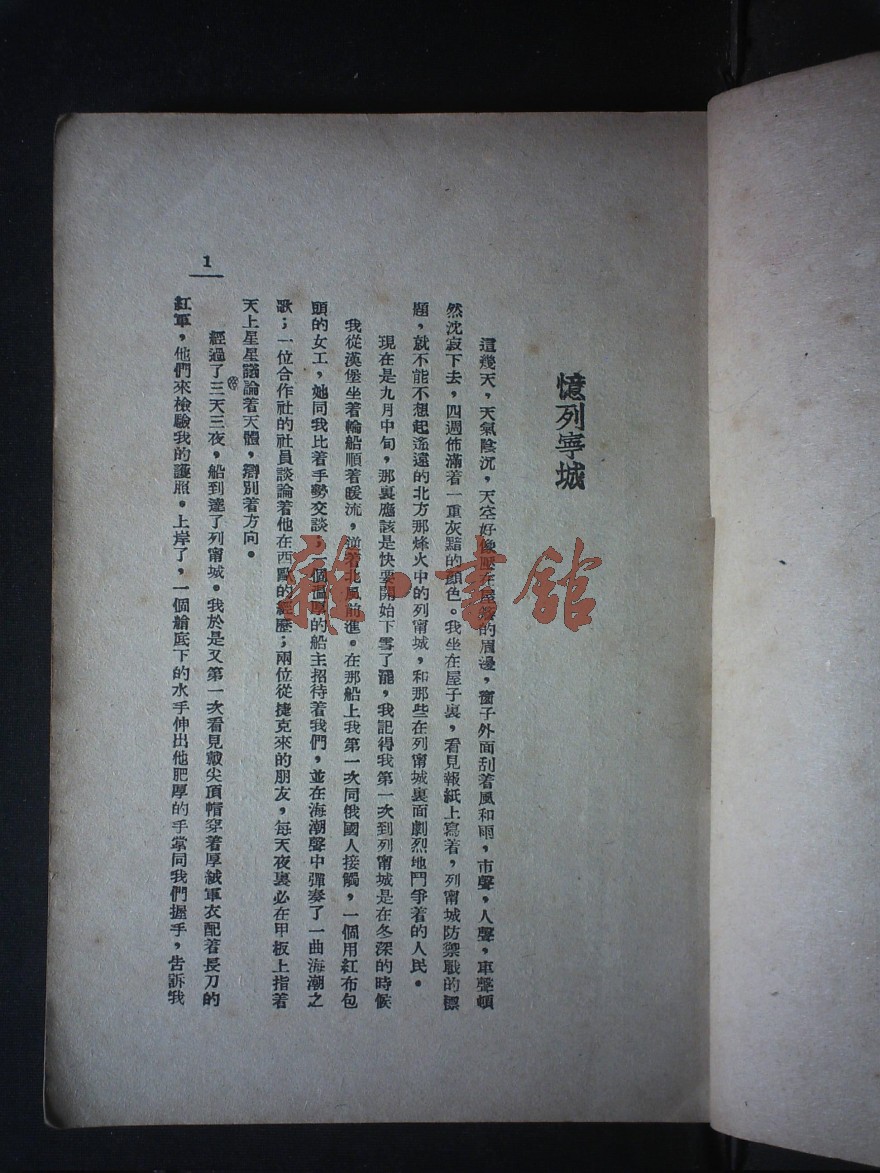 憶列寧城
這幾天，天氣陰沉，天空好像壓在屋簷的眉邊，窗子外面刮着風和雨，市聲，人聲，車聲頓
然沈寂下去，四週佈滿着一重灰黯的顏色。我坐在屋子裏，看見報紙上寫着，列甯城防禦戰的標
題，就不能不想起遙遠的北方那烽火中的列甯城，和那些在列甯城裏面劇烈地鬥爭着的人民。
現在是九月中旬，那裏應該是快要開始下雪了罷，我記得我第一次到列甯城是在冬深的時候
我從漢堡坐着輪船順着暖流，逆着北風前進。在那船上我第一次同俄國人接觸，一個用紅布包
頭的女工，她同我比着手勢交談；一個溫厚的船主招待着我們，並在海潮聲中彈奏了一曲海潮之
歌；一位合作社的社員談論着他在西歐的經歷；兩位從捷克來的朋友，每天夜裏必在甲板上指着
天上星星議論着天體，辯別着方向。
經過了三天三夜，船到達了列甯城。我於是又第一次看見戴尖頂帽穿着厚絨軍衣配着長刀的
紅軍，他們來檢驗我的護照。上岸了，一個艙底下的水手伸出他肥厚的手掌同我們握手，告訴我
1
雜·書館